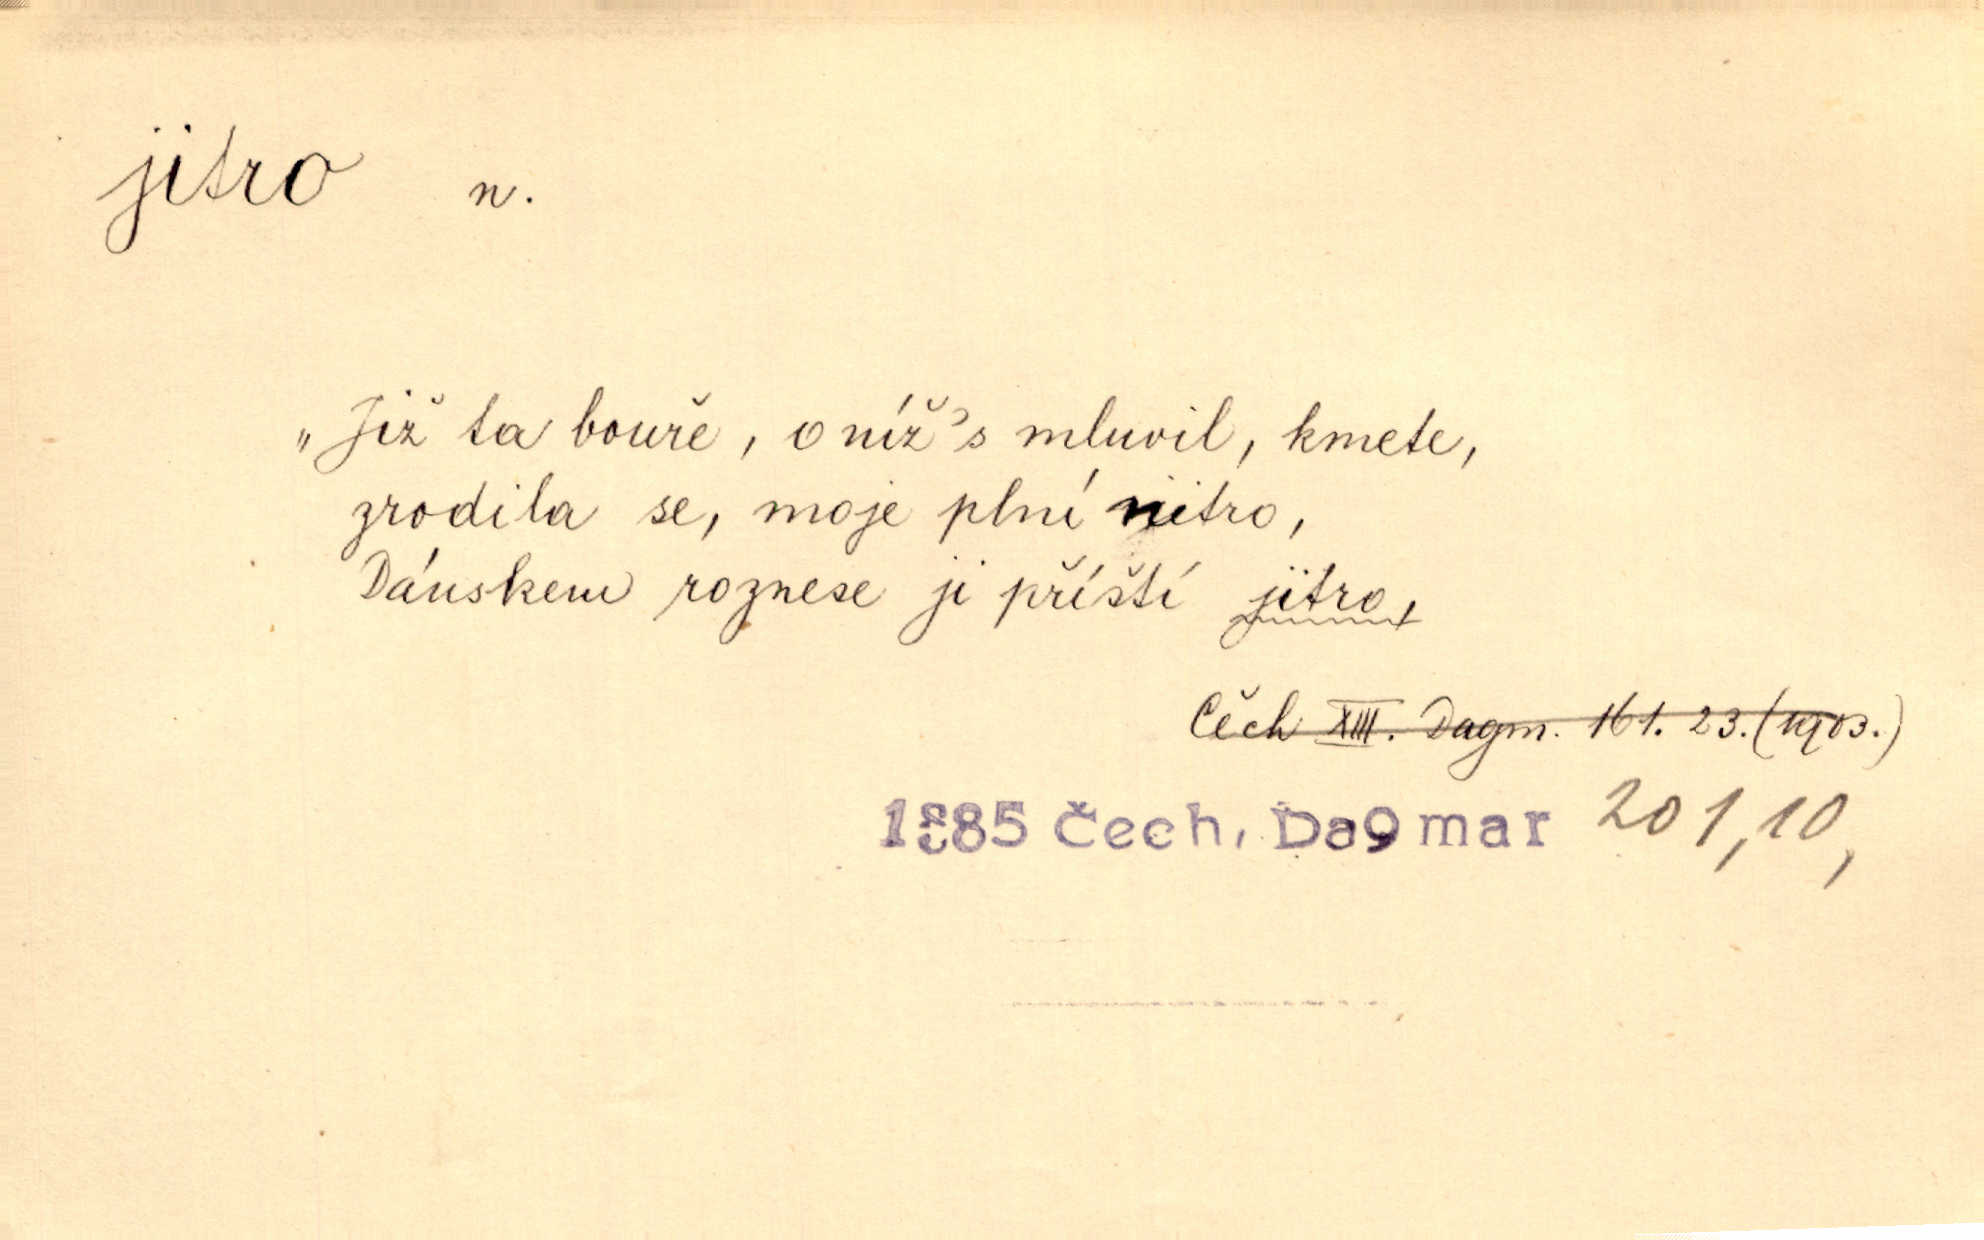 jitro n.
„Již ta bouře, o níž's mluvil, kmete,
zrodila se, moje plní nitro,
Dánskem roznese ji příští jitro,
Čech XIII. Dagm. 161. 23. (1903.)
1885 Čech, Dagmar 201,10,